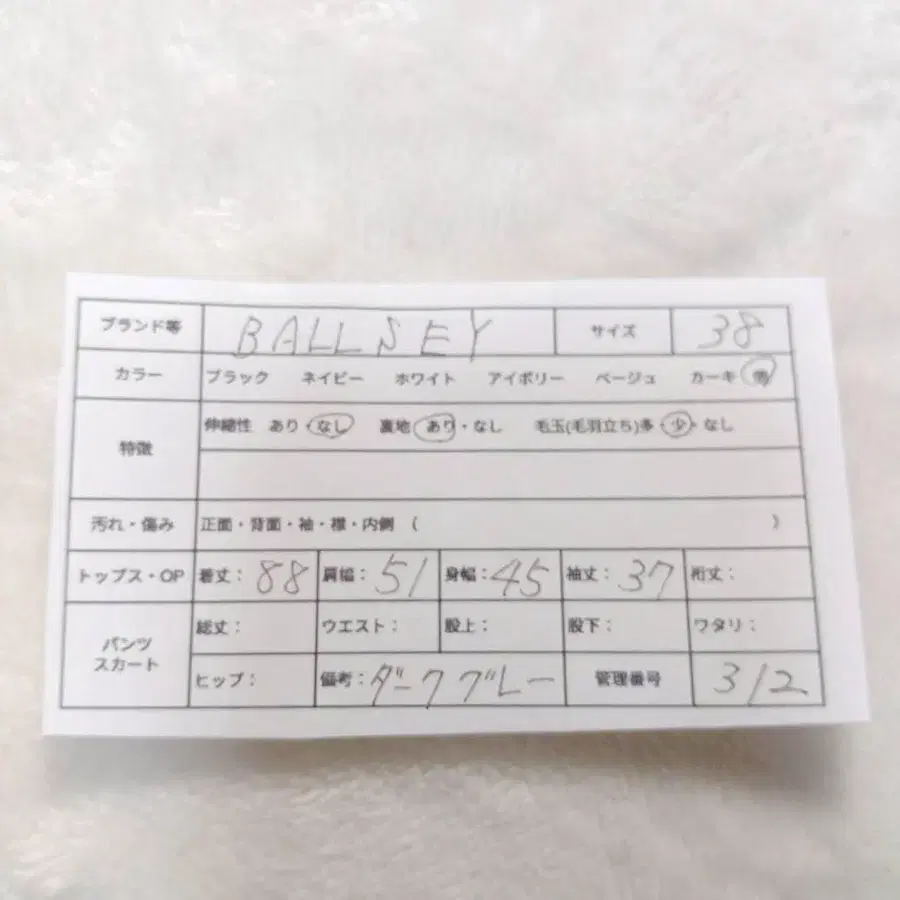 ブランド等 BALLSEY サイズ 38
カラー ブラック ネイビー ホワイト アイボリー ベージュ カーキ
特徴 伸縮性 あり・なし 裏地 あり・なし 毛玉(毛羽立ち)多・少・なし
汚れ・傷み 正面・背面・袖・襟・内側 ( )
トップス・OP 着丈: 88 肩幅: 51 身幅: 45 袖丈: 37 裄丈:
パンツ スカート 総丈: ウエスト: 股上: 股下: ワタリ:
ヒップ: 備考: ダークグレー 管理番号 312